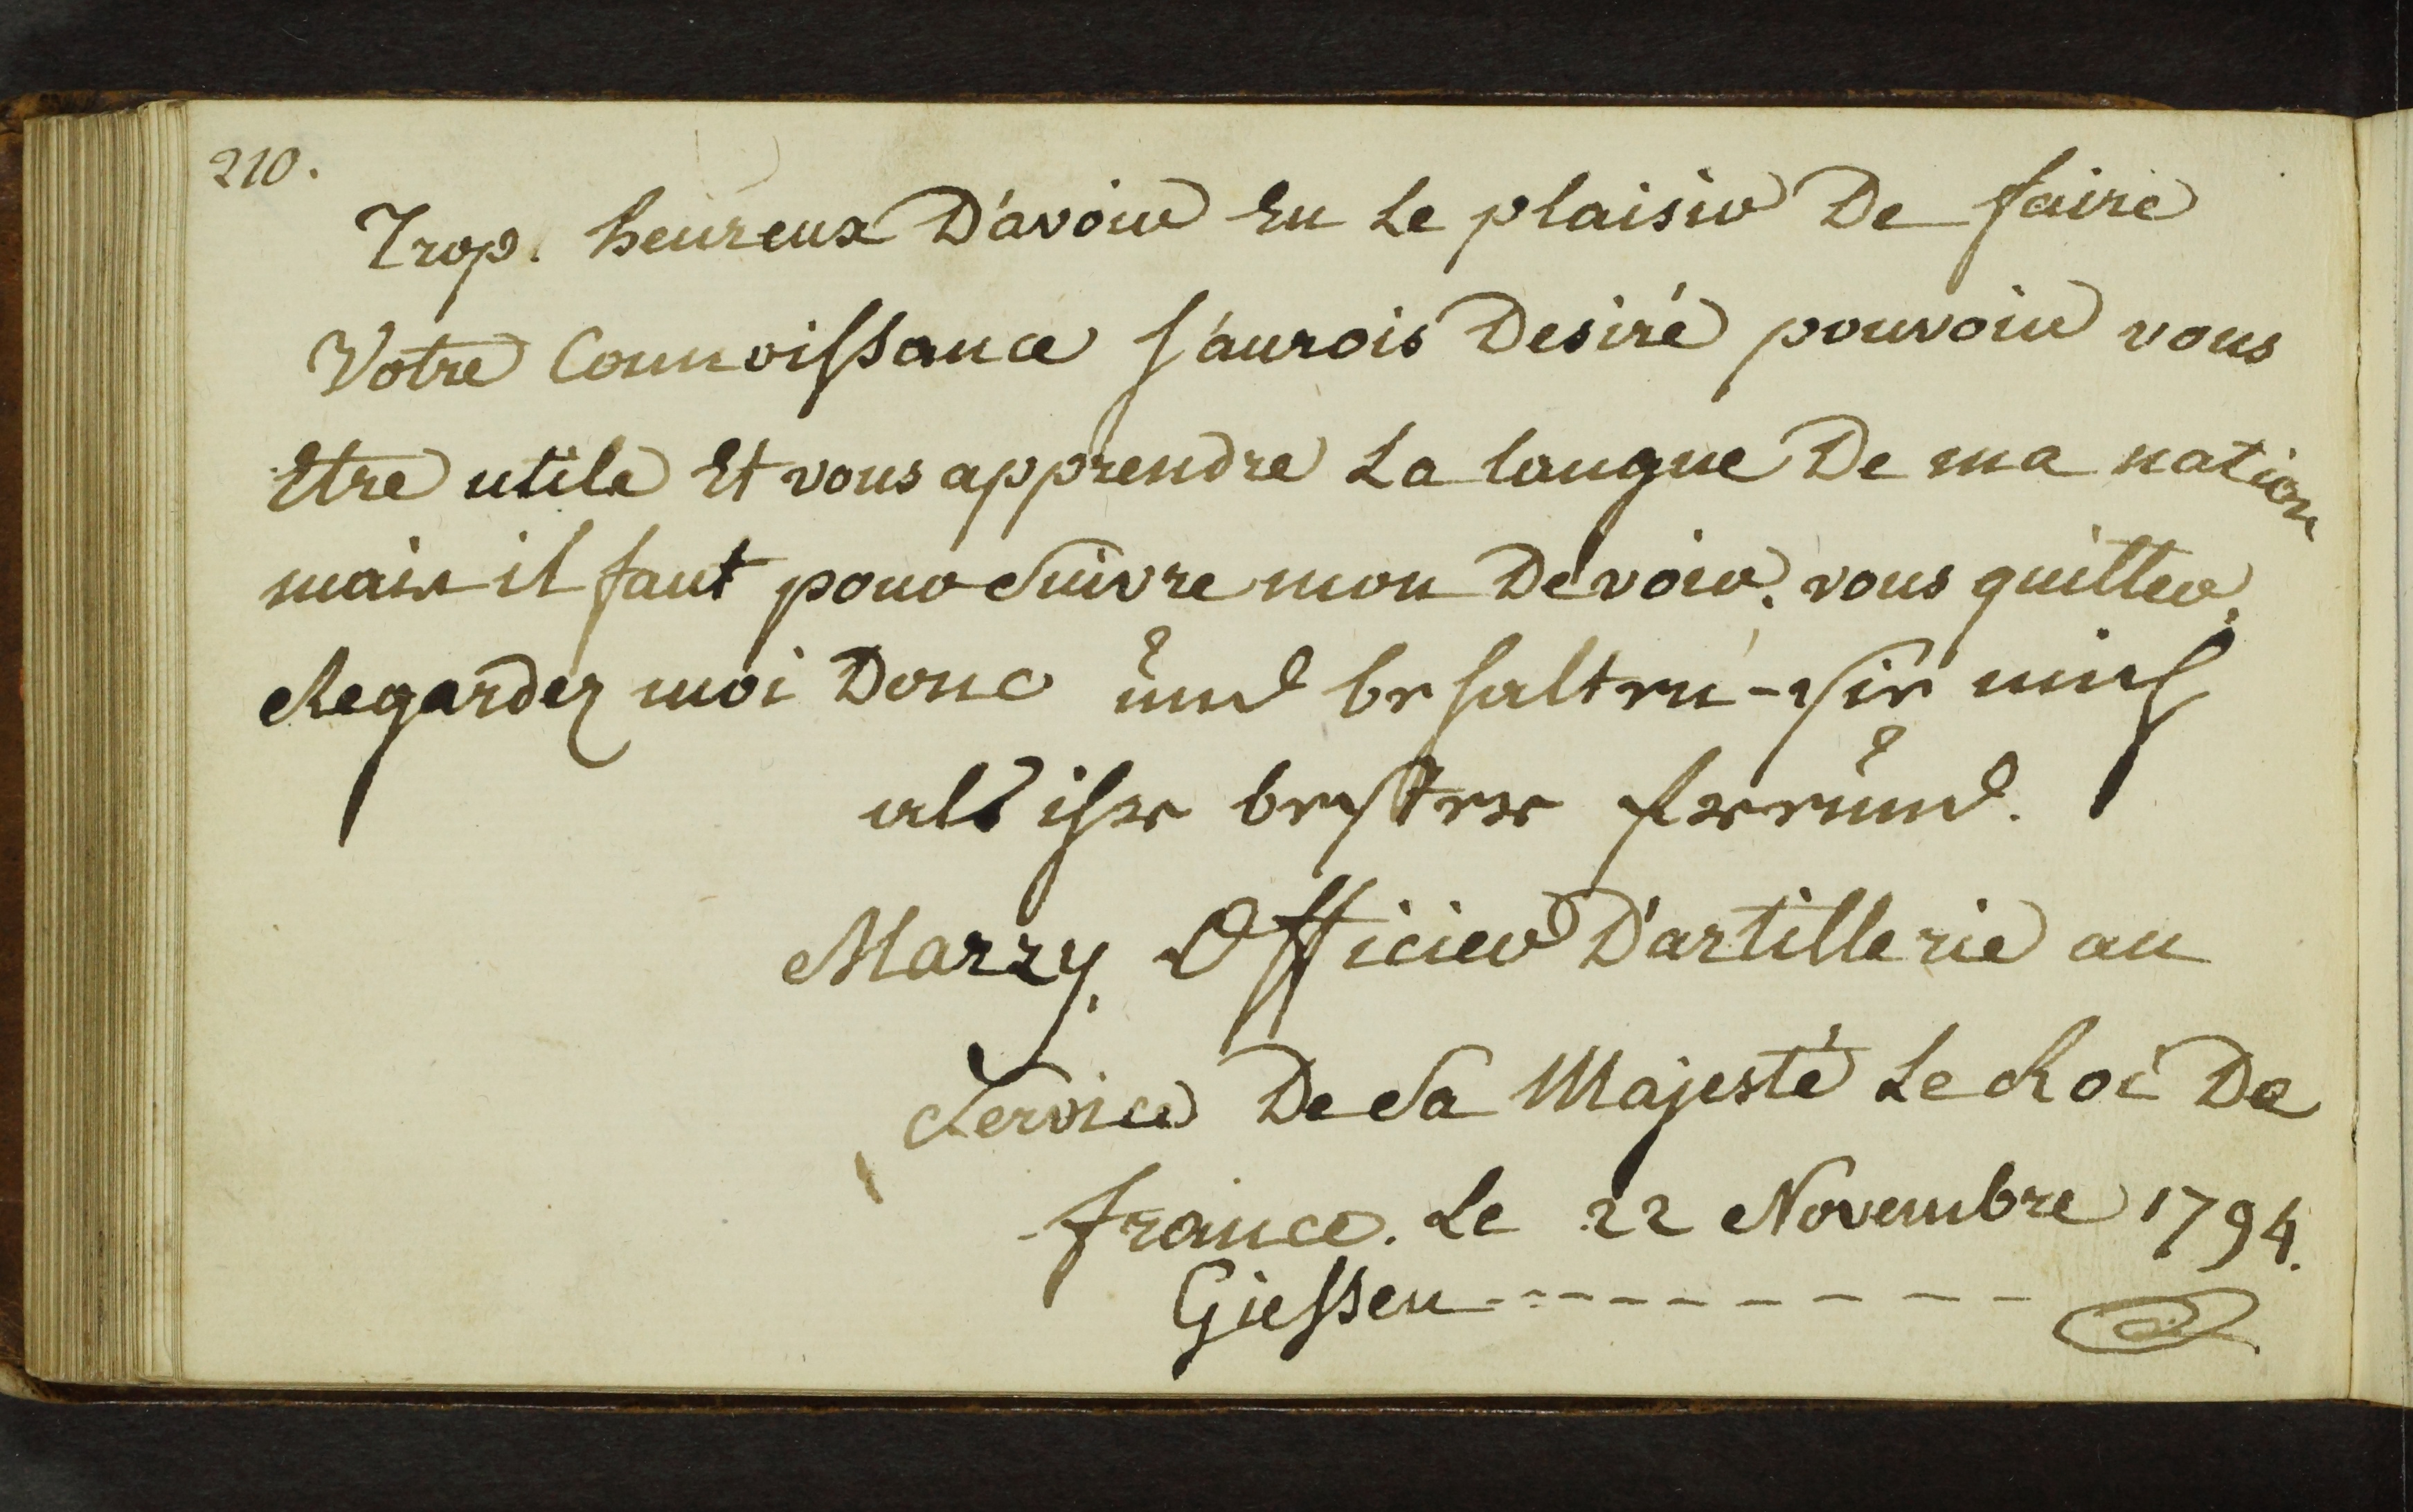 210.
Trop. heureux D'avoir Eu Le plaisir De faire
Votre Connoissance J'aurois Desiré pouvoir vous
Etre utile Et vous apprendre La langue De ma nation
mais il faut pour Suivre mon Devoir, vous quitter,
Regardez moi Donc und behalten-sie mich
als ihr bester freund.
Marzy, Officier D'artillerie au
Service De Sa Majesté Le Roi De
france. Le 22 Novembre 1794.
Giessen - - - - - - - - - -